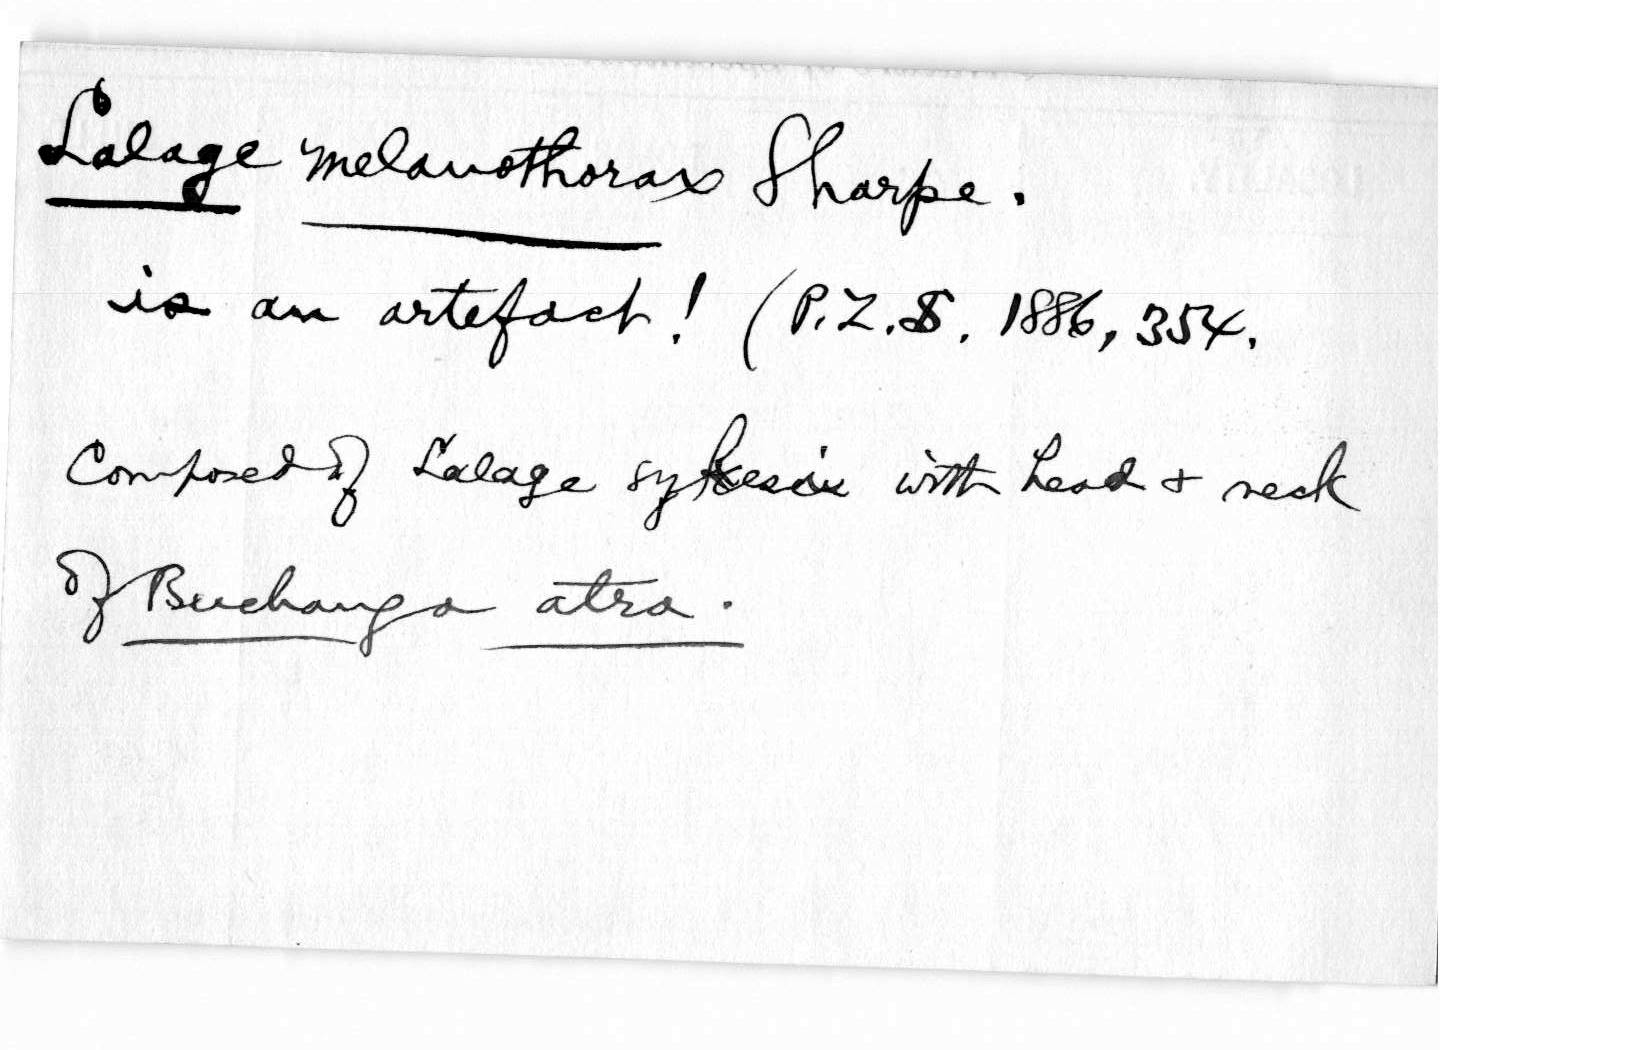 Lalage melanothorax Sharpe.
is an artefact! (P.Z.S. 1886, 354.
Composed of Lalage sykesii with head & neck
of Buchanga atra.